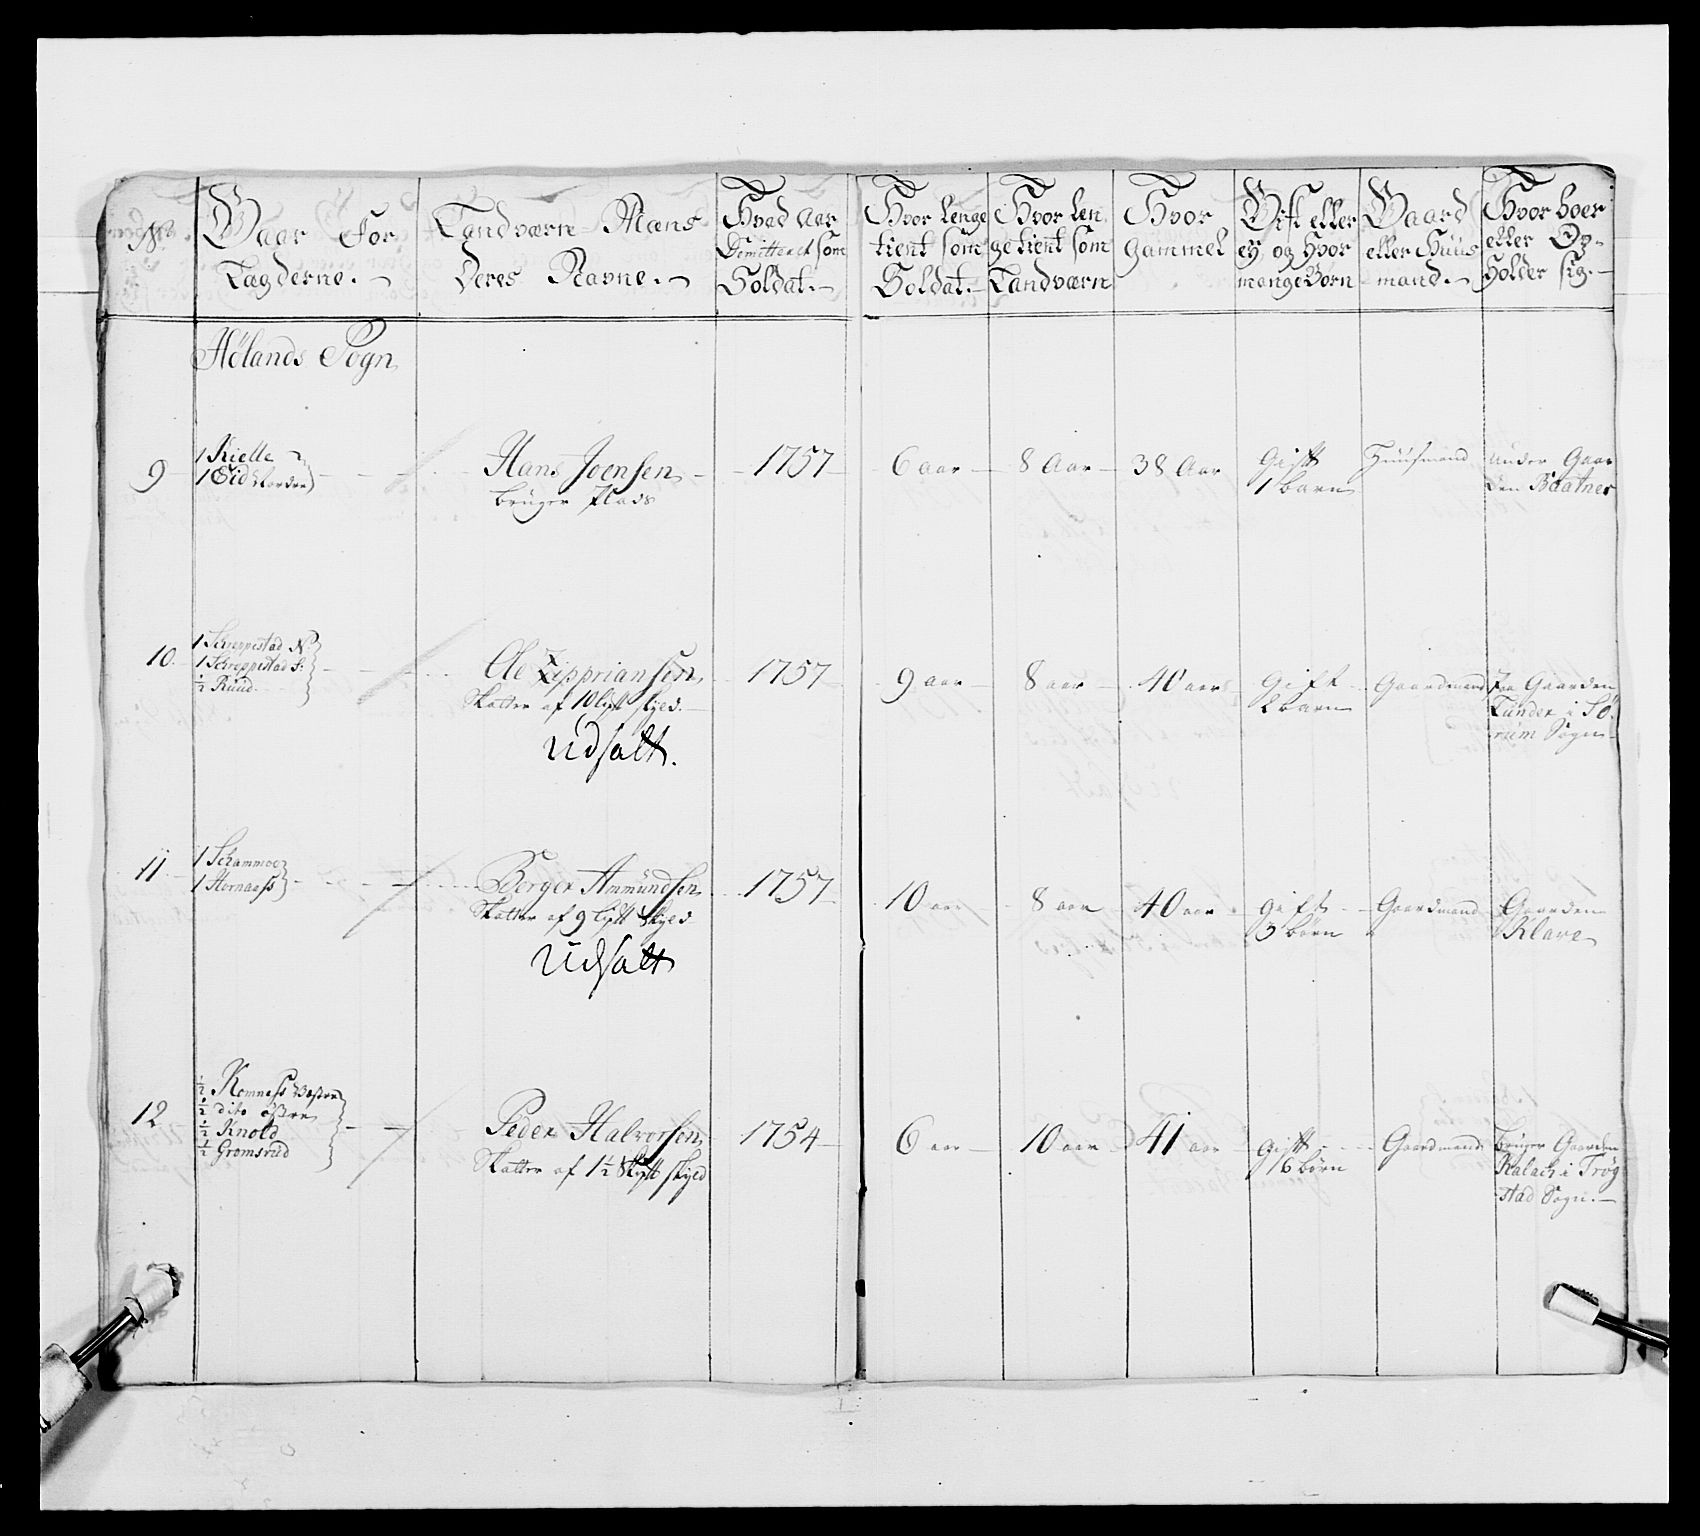 No. Gaar For
Lægderne.
Landværn Mæns
Deres Navne.
Hvad Aar
Dimitteret som
Soldat.
Hvor lenge
tient som
Soldat.
Hvor len
ge tient som
Landværn
Hvor
gammel
Gift eller
ey, og hvor
mange Børn
Gaard
eller Huus
mand.
Hvor boer
eller Op-
holder sig.
Hølands Sogn
9
1 Kielle
1 Eid Nordre
Hans Joensen
bruger Plads
1757
6 aar
8 Aar
38 Aar
Gift
1 barn
Huusmand
under Gaar
den Baatnes
10
1 Schreppestad N:
1 Schreppestad S:
1/2 Ruud
Ole Zipriansen
Skatter af 10 skyld
Udsalt.
1757
9 aar
8 aar
40 aar
Gift
2 barn
Gaardmand
Paa Gaarden
Lunder i Sø
rum Sogn
11
1 Schammoe
1 Hornaass
Berger Ammundsen
Skatter af 9 skyld
Udsalt
1757
10 aar
8 aar
40 aar
gift
3 børn
Gaardmand
Gaarden
Klave
12
1/2 Komness Vestre
1/2 dito østre
1/2 Knold
1/2 Gromsrud
Peder Halvorsen
Skatter af 1 1/2 skyld
1754
6 aar
10 aar
41 aar
gift
6 børn
Gaardmand
bruger Gaarden
Kalach i Trøg
stad Sogn.